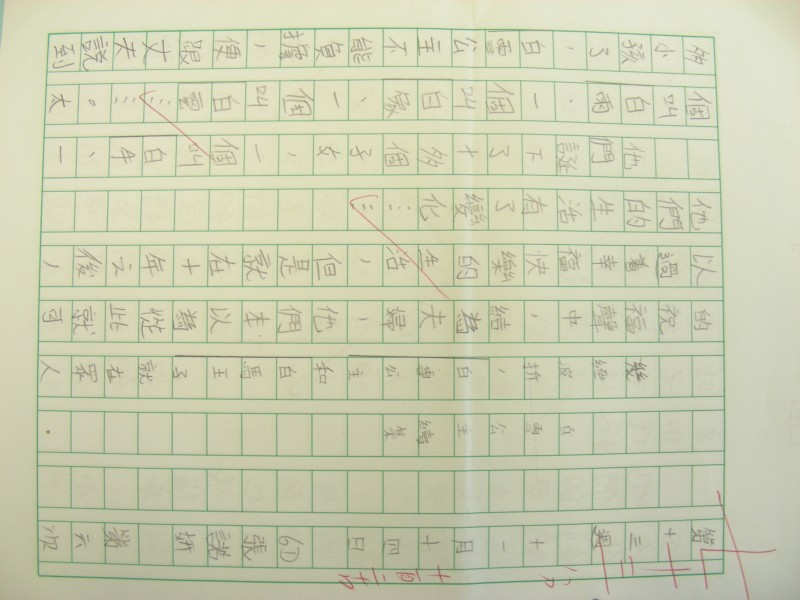 第十三週 十一月十四日 61 張 妍 第六次
白雪公主續集
幾經波折，白雪公主和白馬王子就在眾人
的祝福聲中，結為夫婦，他們本以為從此就可
以過著幸福快樂的生活，但是就在十年之後，
他們的生活有了變化……
他們誕下了十多個子女，一個叫白牛、一
個叫白雨、一個叫白家、一個叫白雲……。太
多小孩了，白雪公主不能負擔，便跟丈夫說到